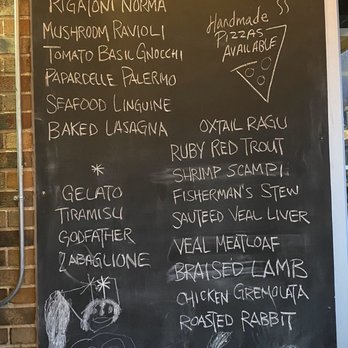 RIGATONI NORMA
MUSHROOM RAVIOLI
TOMATO BASIL GNOCCHI
PAPARDELLE PALERMO
SEAFOOD LINGUINE
BAKED LASAGNA
*
GELATO
TIRAMISU
GODFATHER
ZABAGLIONE
*
Handmade
PIZZAS
AVAILABLE
OXTAIL RAGU
RUBY RED TROUT
SHRIMP SCAMPI
FISHERMAN'S STEW
SAUTEED VEAL LIVER
VEAL MEATLOAF
BRAISED LAMB
CHICKEN GREMOLATA
ROASTED RABBIT